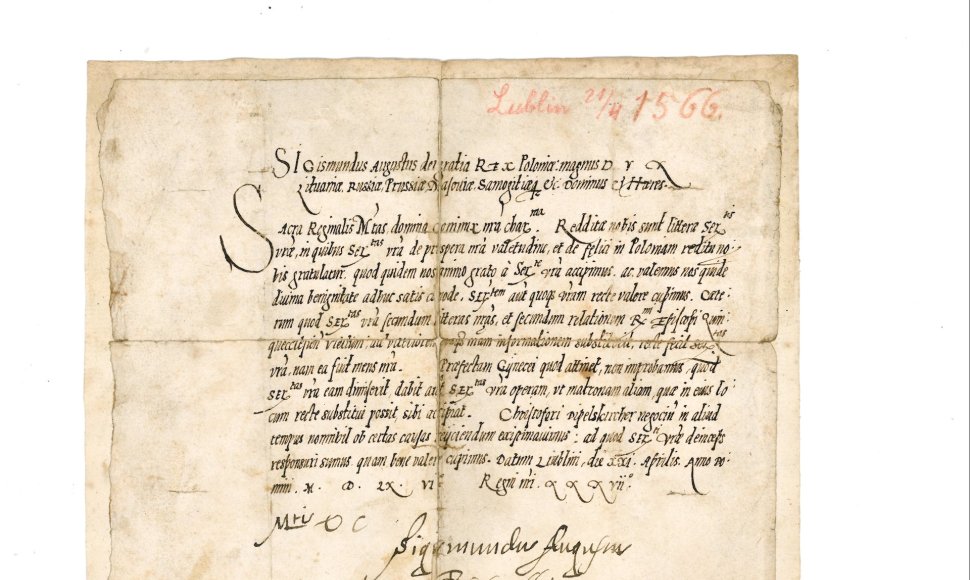 Lublin 21/4 1566.
SIGismundus Augustus dei gratia REX Poloniæ magnus DUX
Lituaniæ, Russiæ, Prussiæ, Masoviæ, Samogitiæq; &c. Dominus et Hæres.
SAcra Reginalis Mtas, domina coniunx nra char.ma Redditæ nobis sunt litteræ Sertis
vræ, in quibus Sertas vra de prospera nra valetudine, et de felici in Poloniam reditu no:
bis gratulatur. quod quidem nos animo grato à Serte vra accipimus. ac valemus nos quidē
divina benignitate adhuc satis cōmode, Sertem aūt quoqȝ vram recte valere cupimus. Cæte:
rum quod Sertas vra secundum litteras nras, et secundum relationem Rmi Episcopi Quin:
queecclesien informationem substituerit, recte fecit Sertas
vra, nam ea fuit mens nra. Præfectam Gynecei quod attinet, non improbamus, quod
Sertas vra eam dimiserit, dabit aūt Sertas vra operam, vt matronam aliam, quæ in eius lo:
cum recte substitui possit, sibi accipiat. Christofori negociū in aliud
tempus nonnihil ob certas causas reijciendum existimavimus: ad quod Serti vræ deinceps
responsuri sumus. quam bene valere cupimus. Datum Liublini, die XXI. Aprilis. Anno Do:
mini. M. D. LX. VIo. Regni nri. XXXVII.o
Mtis V C
Sigismundus Augustus